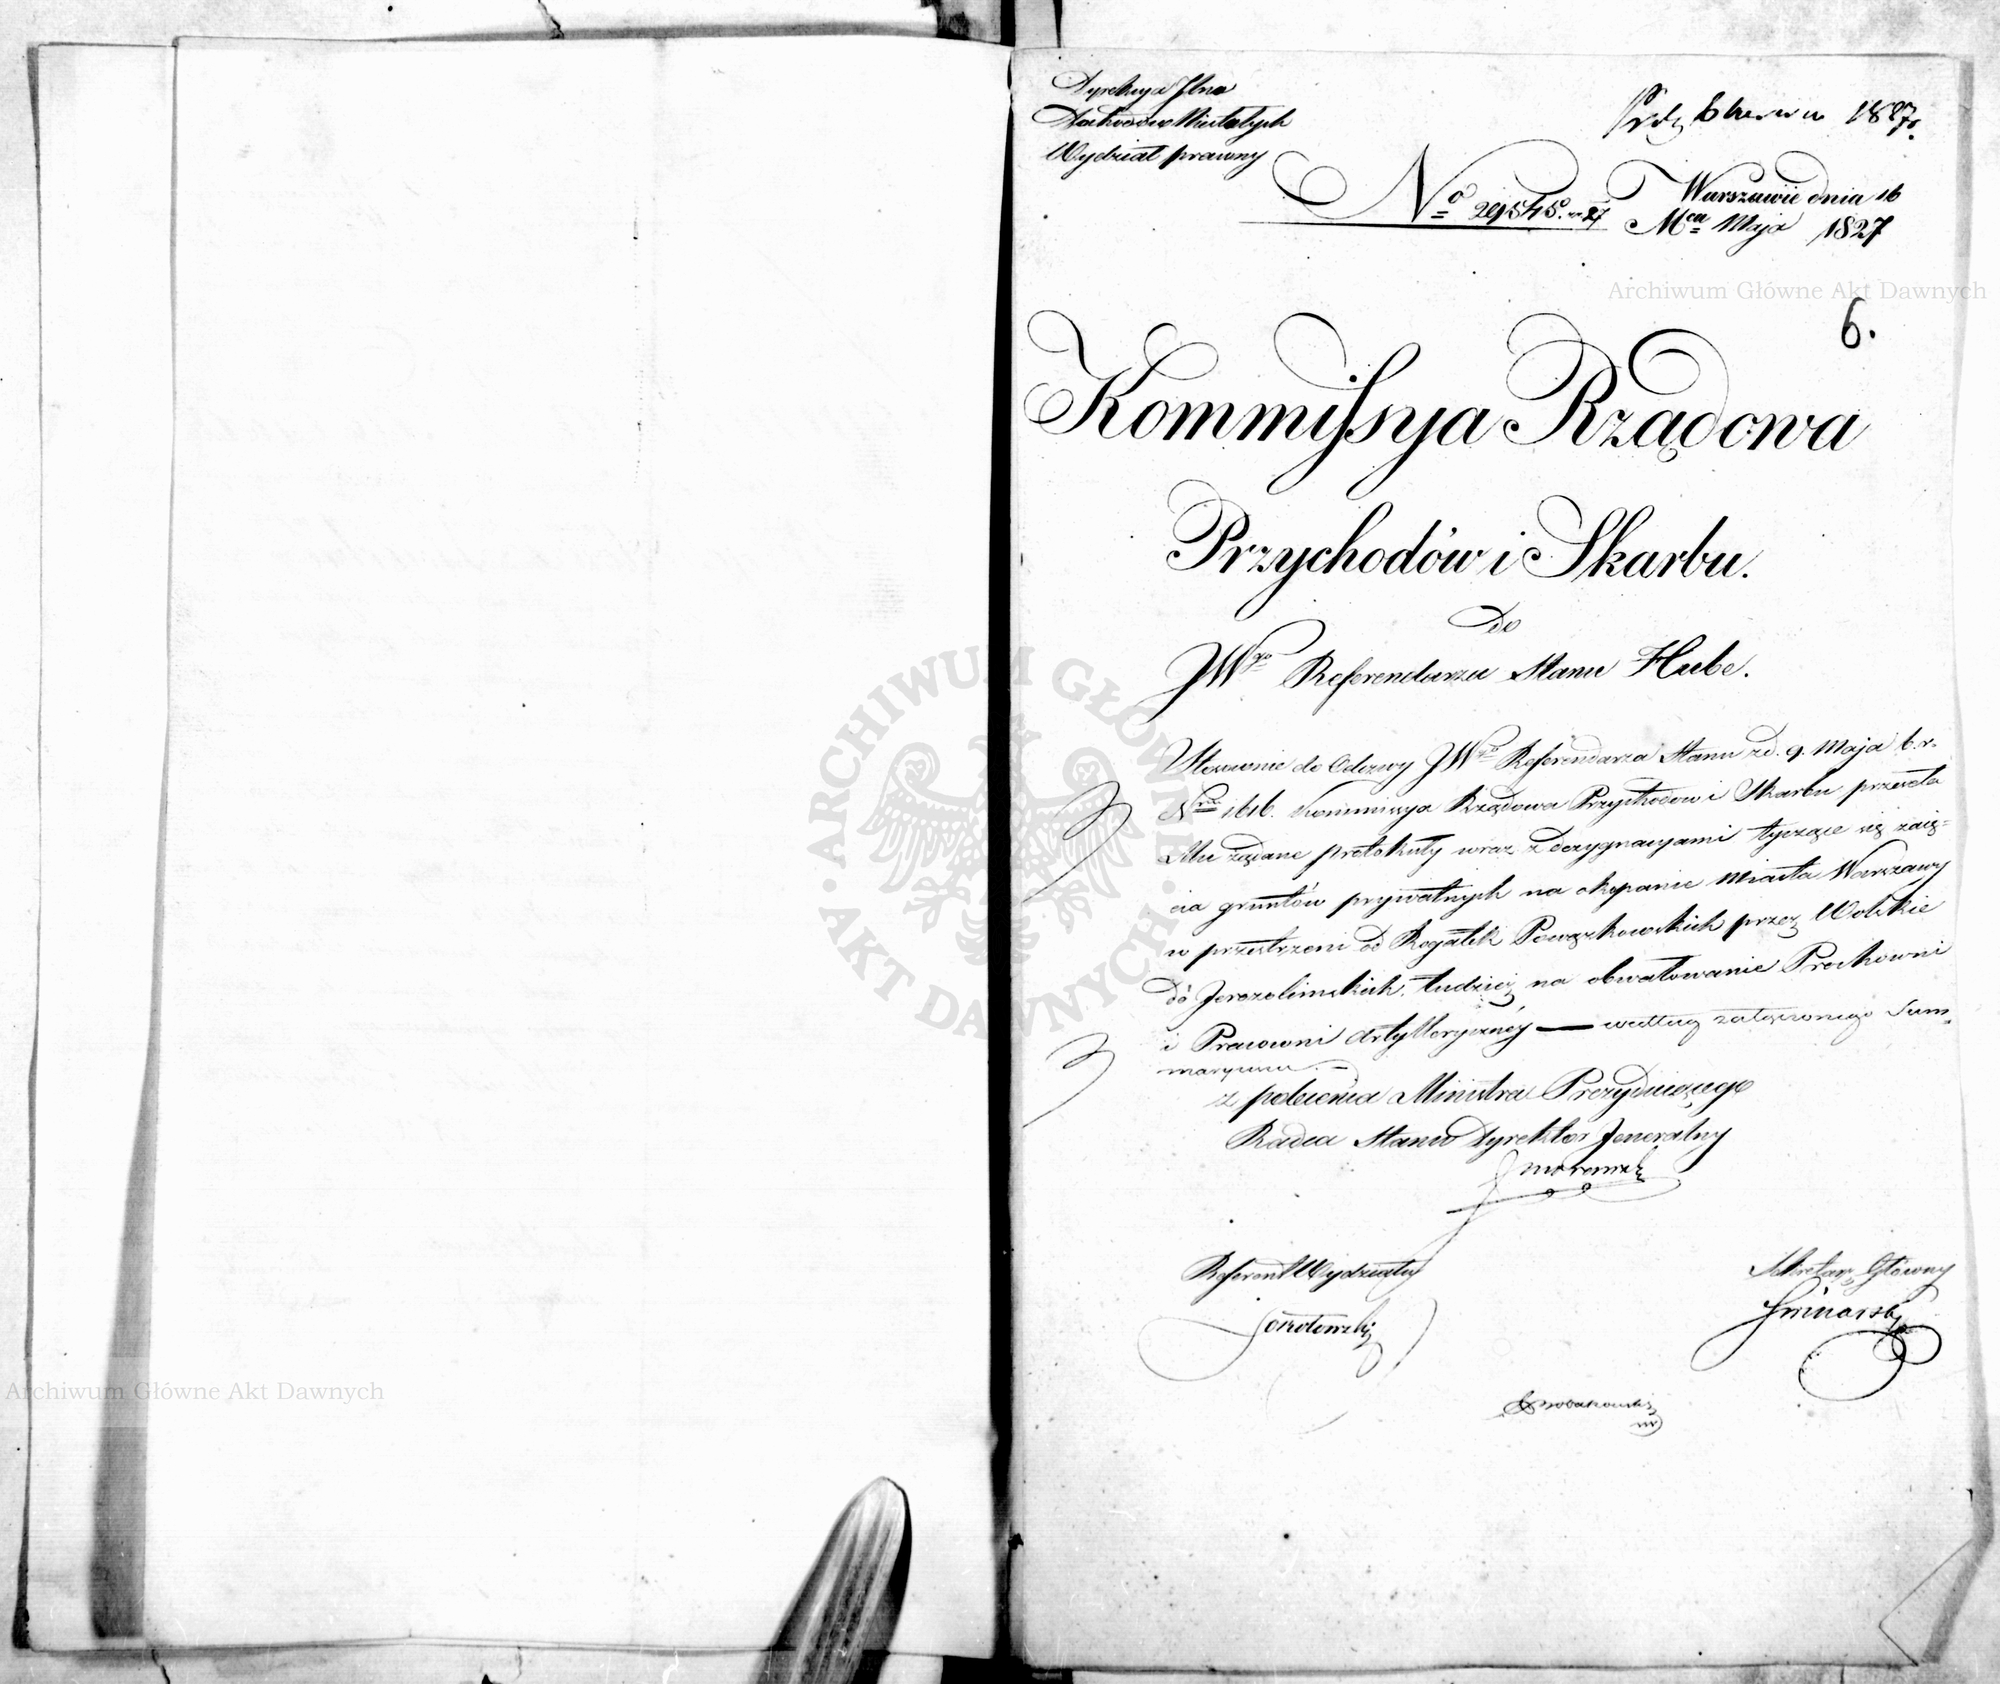 Dyrekcya Jlna
Dochodów Niestałych
Wydział prawny
Prdz 6 Czerwca 1827 r.
No 29545. 27
Warszawie dnia 16
Mca Maja 1827
Archiwum Główne Akt Dawnych
6.
Kommissya Rządowa
Przychodów i Skarbu.
Do
JWgo Referendarza Stanu Hube.
Stosownie do Odezwy JWgo Referendarza Stanu z d. 9. Maja b. r.
Nro 1616. Kommissya Rządowa Przychodów i Skarbu przesyła
Mu żądane protokuły wraz z dezygnacyami tyczące się zaię-
cia gruntów prywatnych na okopanie Miasta Warszawy
w przestrzeni od Rogatek Powązkowskich przez Wolskie
do Jerozolimskich, tudzież na obwałowanie Prochowni
i Pracowni Artylleryczney — według załączonego Sum-
maryusza. —
z polecenia Ministra Prezyduiącego
Radca Stanu Dyrektor Jeneralny
Referent Wydziału
Sekretarz Główny
ARCHIWUM GŁÓWNE · AKT DAWNYCH ·
Archiwum Główne Akt Dawnych